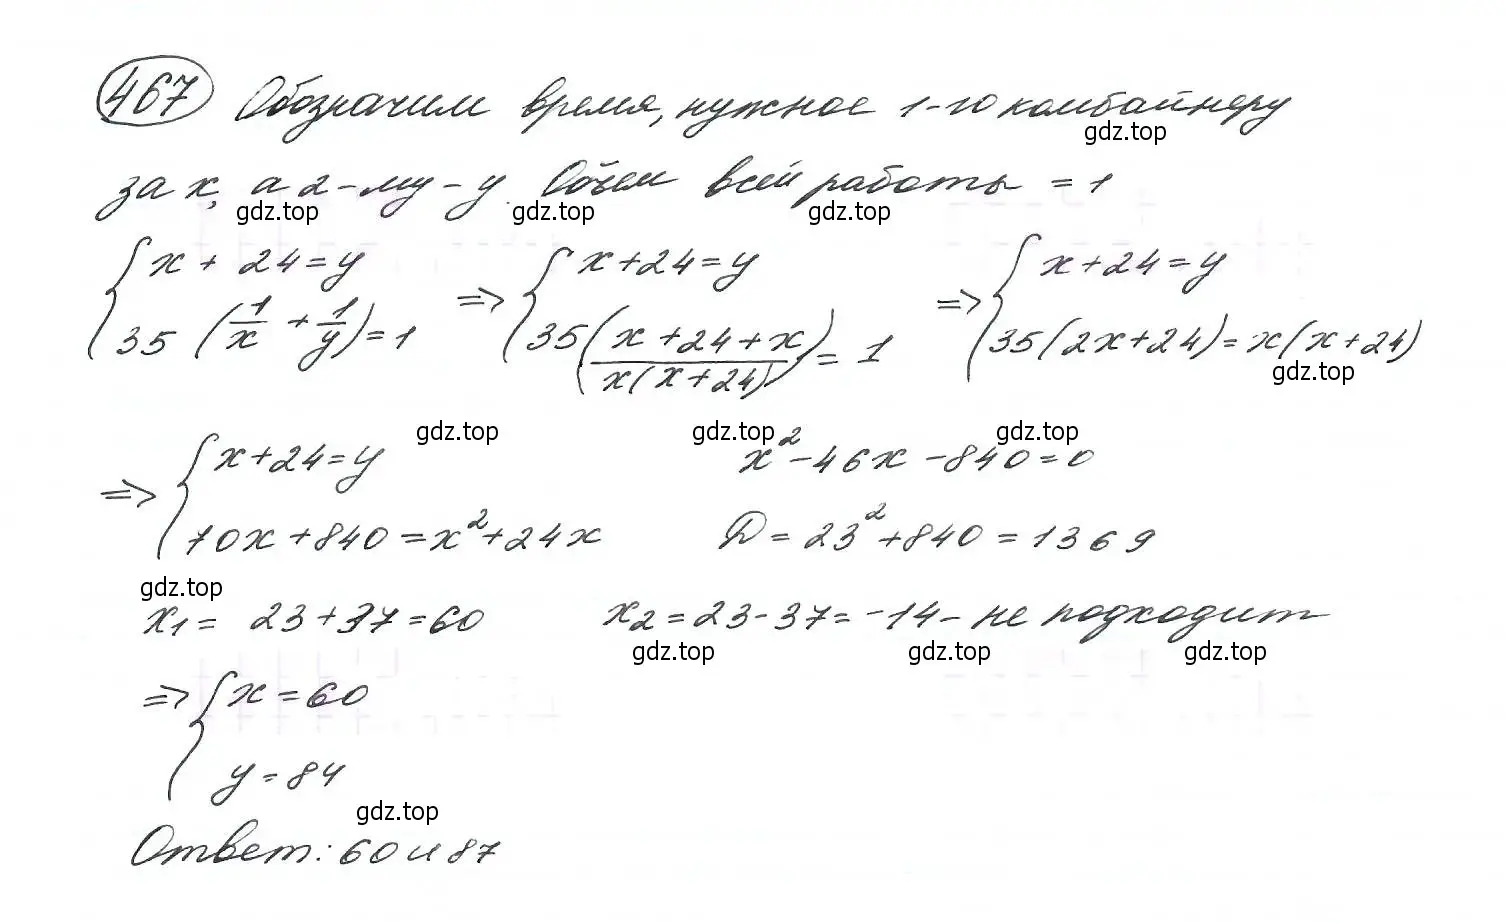 467 Обозначим время, нужное 1-го комбайнеру
gdz.top
за x, а 2-му - y. Объем всей работы = 1
gdz.top gdz.top gdz.top
{ x + 24 = y => { x + 24 = y => { x + 24 = y
35 (1/x + 1/y) = 1 35 ((x + 24 + x)/(x(x + 24))) = 1 35(2x + 24) = x(x + 24)
gdz.top
gdz.top gdz.top gdz.top
=> { x + 24 = y x² - 46x - 840 = 0
70x + 840 = x² + 24x D = 23² + 840 = 1369
gdz.top
x1 = 23 + 37 = 60 x2 = 23 - 37 = -14 - не подходит
gdz.top gdz.top gdz.top
=> { x = 60
y = 84
gdz.top
Ответ: 60 и 87